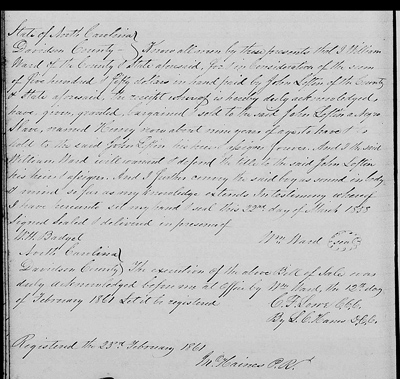 State of North Carolina
Davidson County - Know all men by these presents that I William
Ward of the County & State aforesaid, for & in consideration of the sum
of five hundred & fifty dollars in hand paid by John Loftin of the County
& State aforesaid the receipt whereof is hereby duly acknowledged
have, given, granted, bargained & sold to the said John Loftin a Negro
Slave, named Henry now about nine years of age to have &
hold to the said John Loftin his heirs & assigns forever. And I the said
William Ward will warrant & defend the title to the said John Loftin
his heirs & assigns. And I further convey the said boy as sound in body
& mind so far as my knowledge extends. In testimony whereof
I have hereunto set my hand & seal this 23rd day of March 1853
Signed Sealed & delivered in presence of
Wm Ward
North Carolina
Davidson County The execution of the above Bill of Sale was
duly acknowledged before me at Office by Wm Ward, the 12th day
of February 1861 Let it be registered
C. F. Lowe
By L. C. Hanes
Registered the 23rd February 1861
Haines P.R.